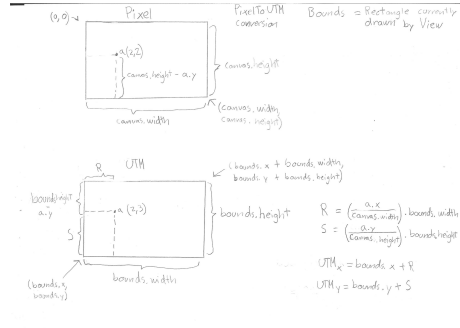 (0,0)
Pixel
PixelToUTM
Conversion
Bounds = Rectangle currently
drawn by View
a(2,2)
canvas.height - a.y
canvas.height
canvas.width
(canvas.width
canvas.height)
UTM
(bounds.x + bounds.width,
bounds.y + bounds.height)
R
bounds.height
a.y
a (2,3)
S
bounds.height
bounds.width
(bounds.x,
bounds.y)
R = (a.x / canvas.width) · bounds.width
S = (a.y / canvas.height) · bounds.height
UTMx = bounds.x + R
UTMy = bounds.y + S